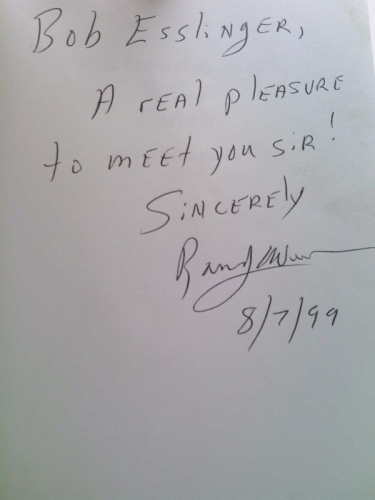 Bob Esslinger,
A real pleasure
to meet you sir!
Sincerely
8/7/99